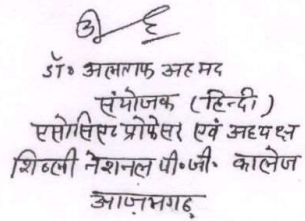 डॉ० अलताफ अहमद
संयोजक (हिन्दी)
एसोसिएट प्रोफेसर एवं अध्यक्ष
शिब्ली नेशनल पी.जी. कालेज
आज़मगढ़